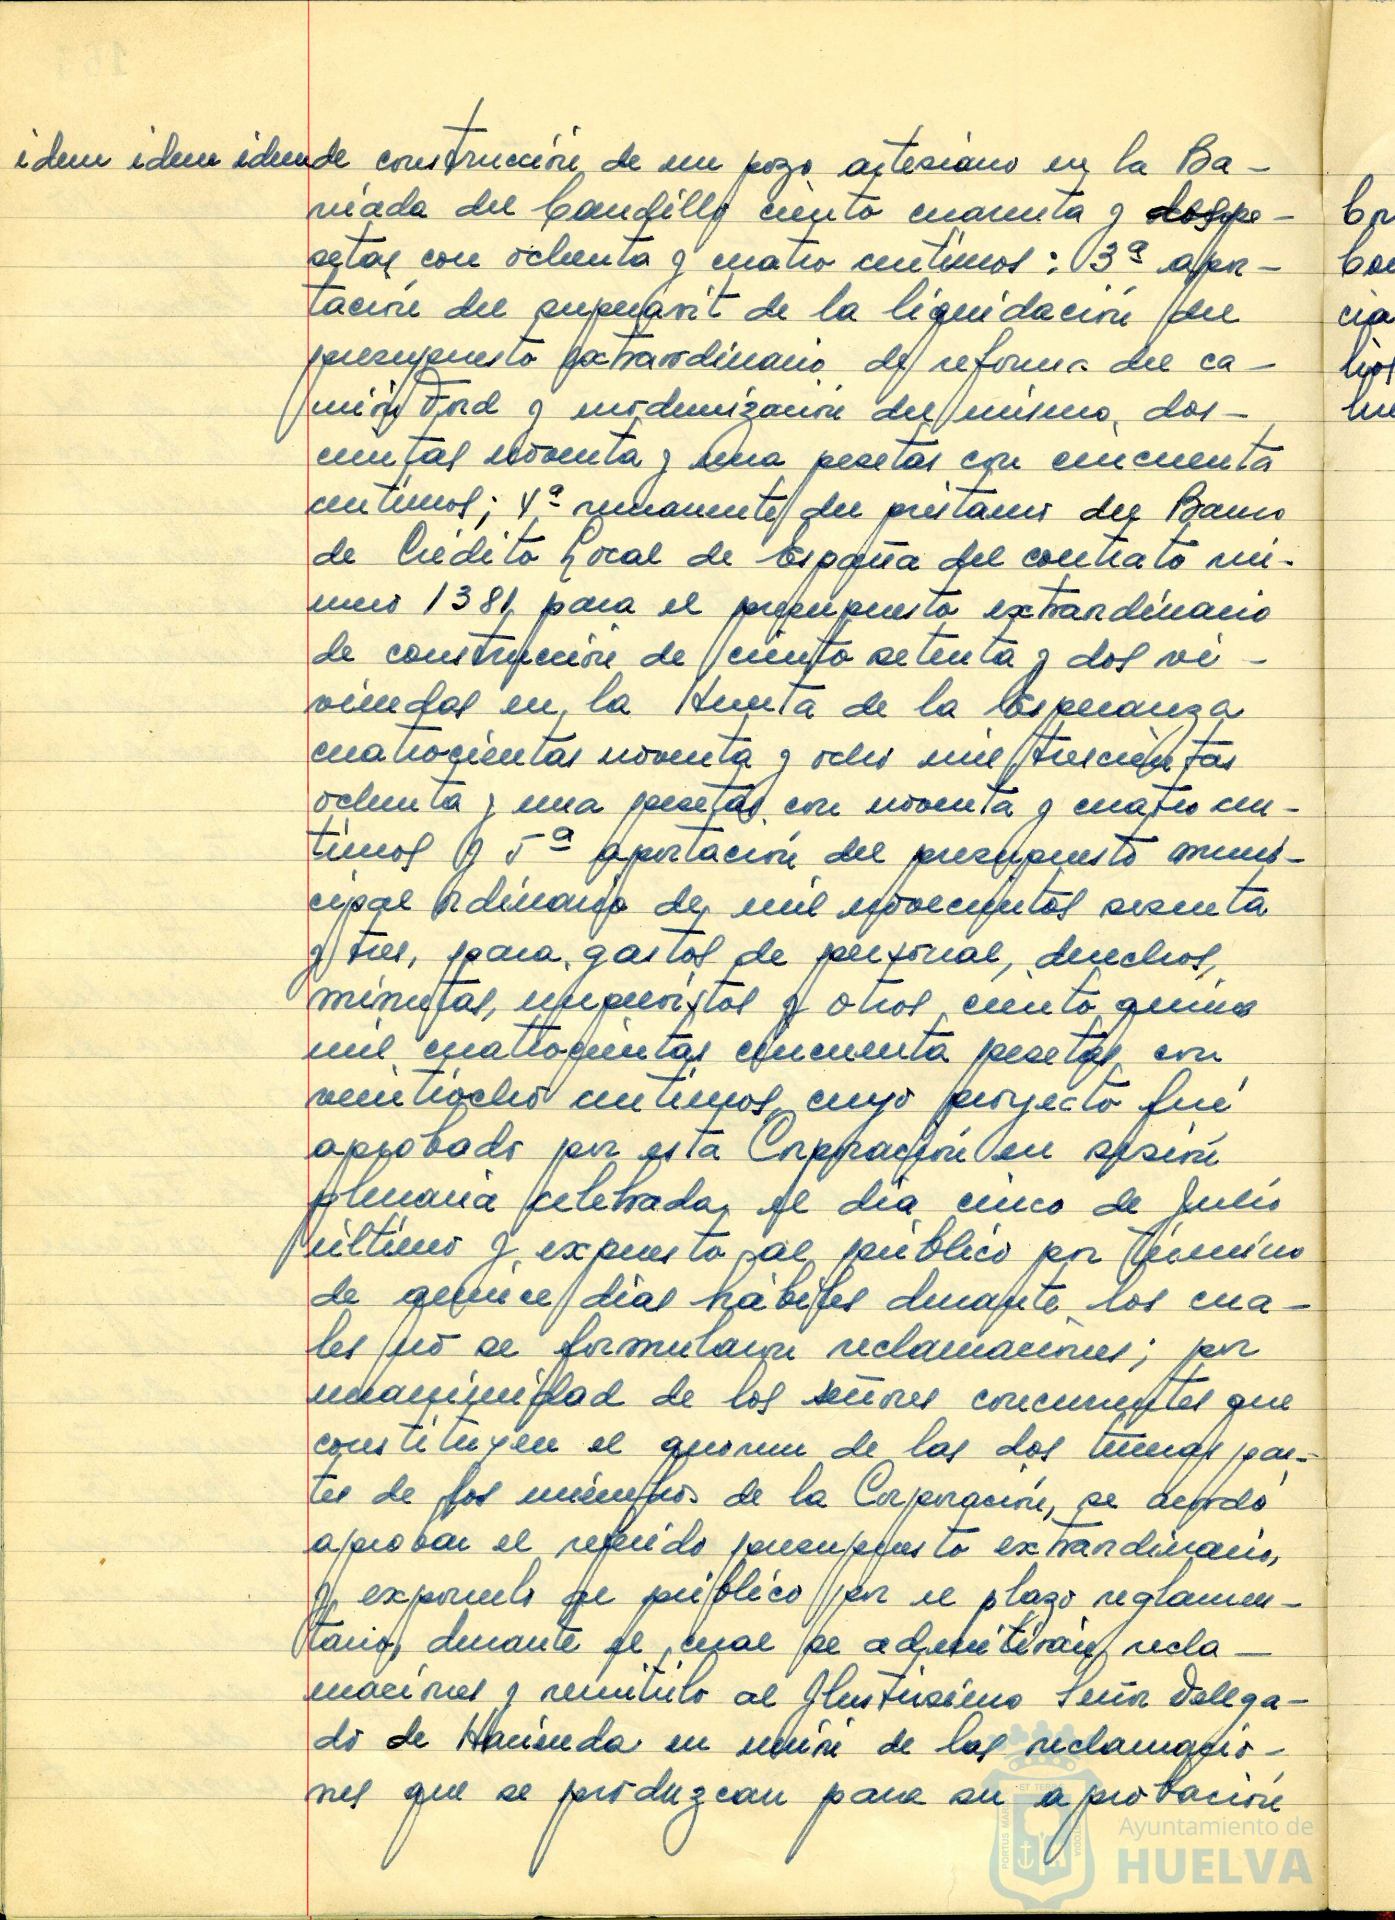 idem idem idem de construcción de un pozo artesiano en la Ba-
rriada del Caudillo ciento cuarenta y dos pe-
setas con ochenta y cuatro centimos: 3ª apor-
tación del superavit de la liquidación del
presupuesto extraordinario de reforma del ca-
mión Ford y modernización del mismo, dos-
cientas noventa y una pesetas con cincuenta
centimos; 4ª remanente del préstamo del Banco
de Crédito Local de España del contrato nú-
mero 1381, para el presupuesto extraordinario
de construcción de ciento setenta y dos vi-
viendas en la Huerta de la Esperanza
cuatrocientas noventa y ocho mil trescientas
ochenta y una pesetas con noventa y cuatro cen-
timos y 5ª aportación del presupuesto muni-
cipal ordinario de mil novecientos sesenta
y tres, para gastos de personal, derechos,
minutas, imprevistos y otros, ciento quince
mil cuatrocientas cincuenta pesetas con
veintiocho centimos, cuyo proyecto fué
aprobado por esta Corporación en sesión
plenaria celebrada el día cinco de Julio
último y expuesto al público por término
de quince días hábiles durante los cua-
les nó se formularon reclamaciones; por
unanimidad de los señores concurrentes que
constituyen el quorum de las dos terceras par-
tes de los miembros de la Corporación, se acordó
aprobar el referido presupuesto extraordinario,
y exponerlo al público por el plazo reglamen-
tario, durante el cual se admitirán recla-
maciones y remitirlo al Ilustrisimo Señor Delega-
do de Hacienda en unión de las reclamacio-
nes que se produzcan para su aprobación
cia
Ayuntamiento de
HUELVA